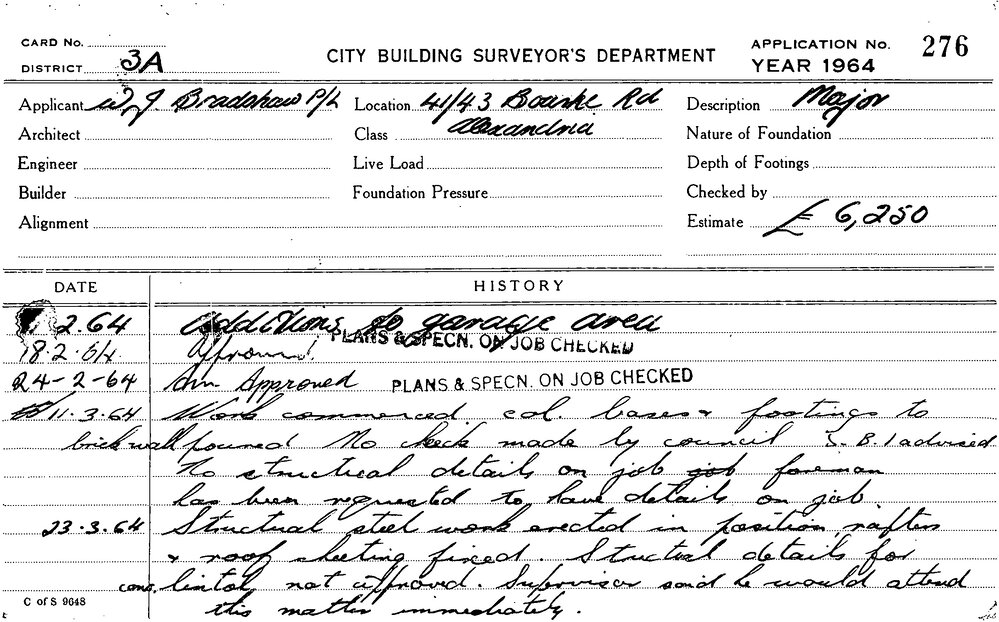 CARD No.
DISTRICT 3A
CITY BUILDING SURVEYOR'S DEPARTMENT
APPLICATION No. 276
YEAR 1964
Applicant W J Bradshaw P/L Location 41/43 Bourke Rd Description Major
Alexandria
Architect Class Nature of Foundation
Engineer Live Load Depth of Footings
Builder Foundation Pressure Checked by
Alignment Estimate £ 6,250
DATE HISTORY
2.64 Additions to garage area
PLANS & SPECN. ON JOB CHECKED
18.2.64 Approved
24-2-64 Am Approved PLANS & SPECN. ON JOB CHECKED
11.3.64 Work commenced col. bases & footings to
brick wall poured No check made by council S.B.I advised
No structical details on job foreman
has been requested to have details on job
23.3.64 Structual steel work erected in position, rafters
& roof sheeting fixed. Structual details for
conc lintols not approved. Supervisor said he would attend
this matter immediately.
C of S 9648